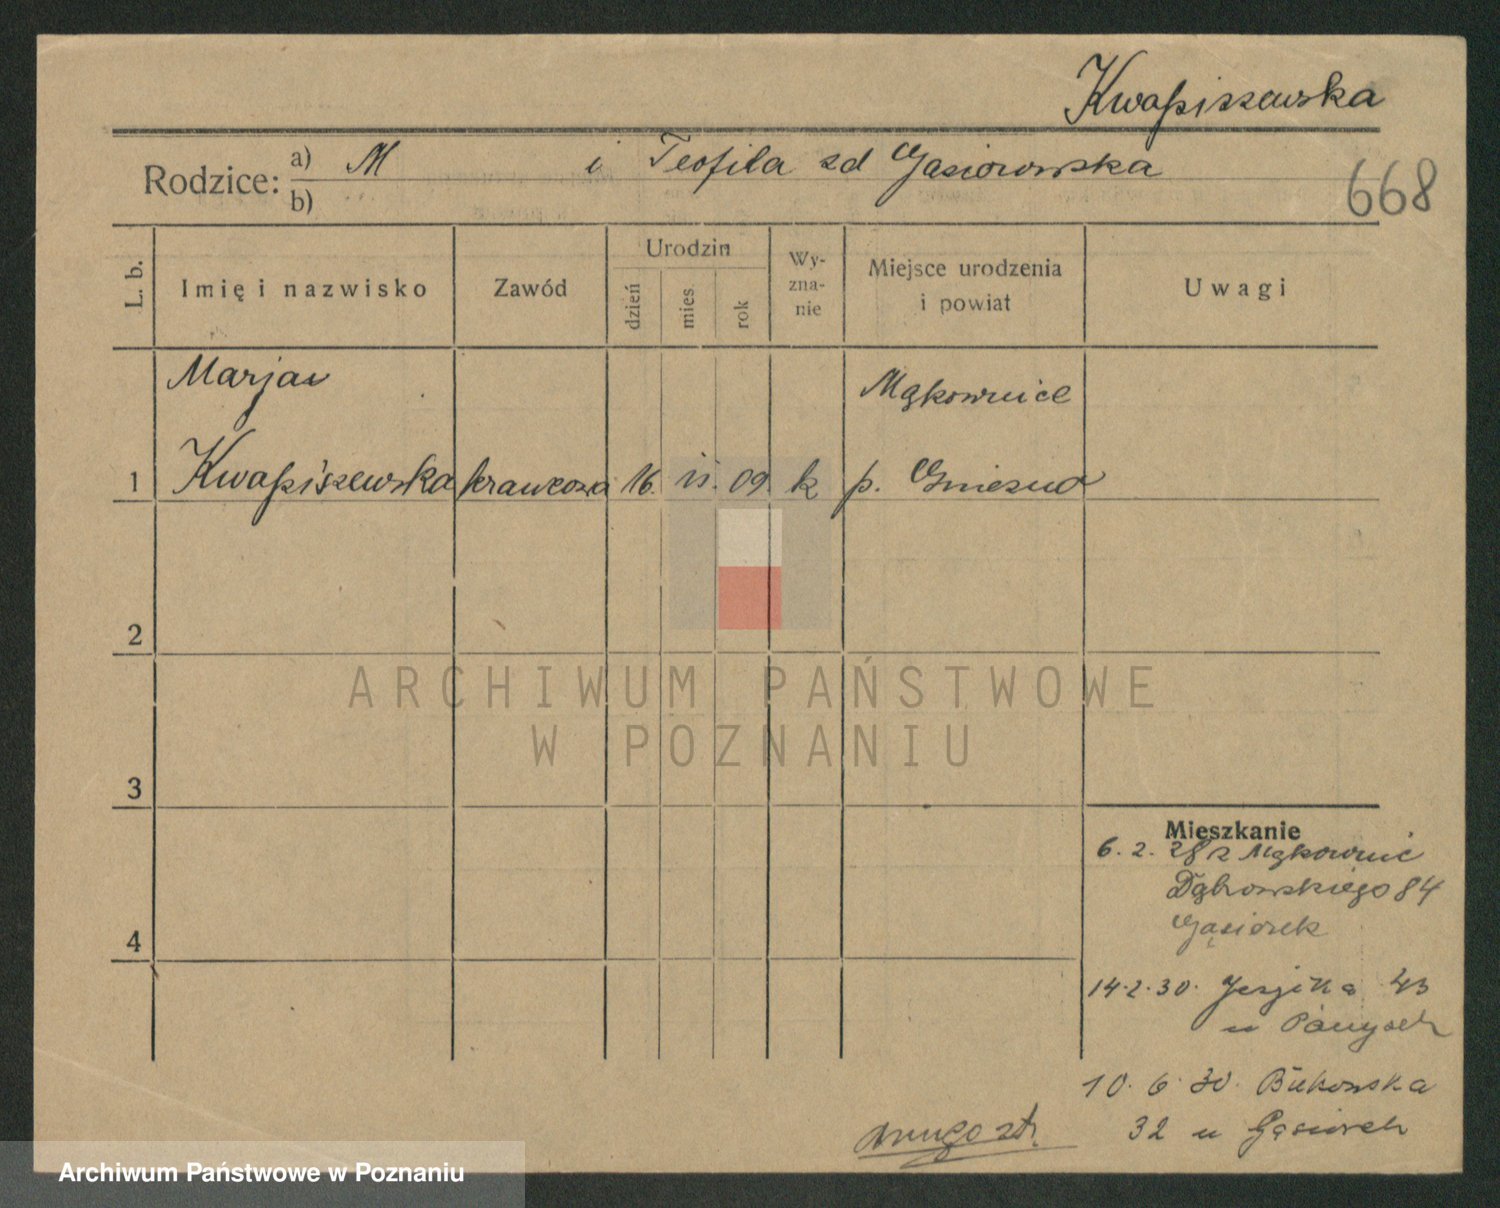 Kwapiszewska
Rodzice: a) M i Teofila zd Gąsiorowska
b)
668
L. b. Imię i nazwisko Zawód Urodzin dzień mies. rok Wy-zna-nie Miejsce urodzenia i powiat Uwagi
Marja Mąkownice
1 Kwapiszewska krawcowa 16. 09 k p. Gniezno
2
3
4
Mieszkanie
6. 2. 28 z Mąkownic
Dąbrowskiego 84
Gąsiorek
14.2.30. 43
u
10. 6. 30. Bukowska
32 u Gąsiorek
ARCHIWUM PAŃSTWOWE
W POZNANIU
Archiwum Państwowe w Poznaniu